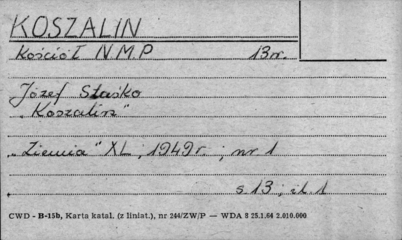 KOSZALIN
Kościół N.M.P 13 w.
Józef Staśko
"Koszalin"
"Ziemia" XL, 1949 r., nr 1
s. 13; il. 1
CWD - B-15b, Karta katal. (z liniat.), nr 244/ZW/P — WDA 8 25.1.64 2.010.000